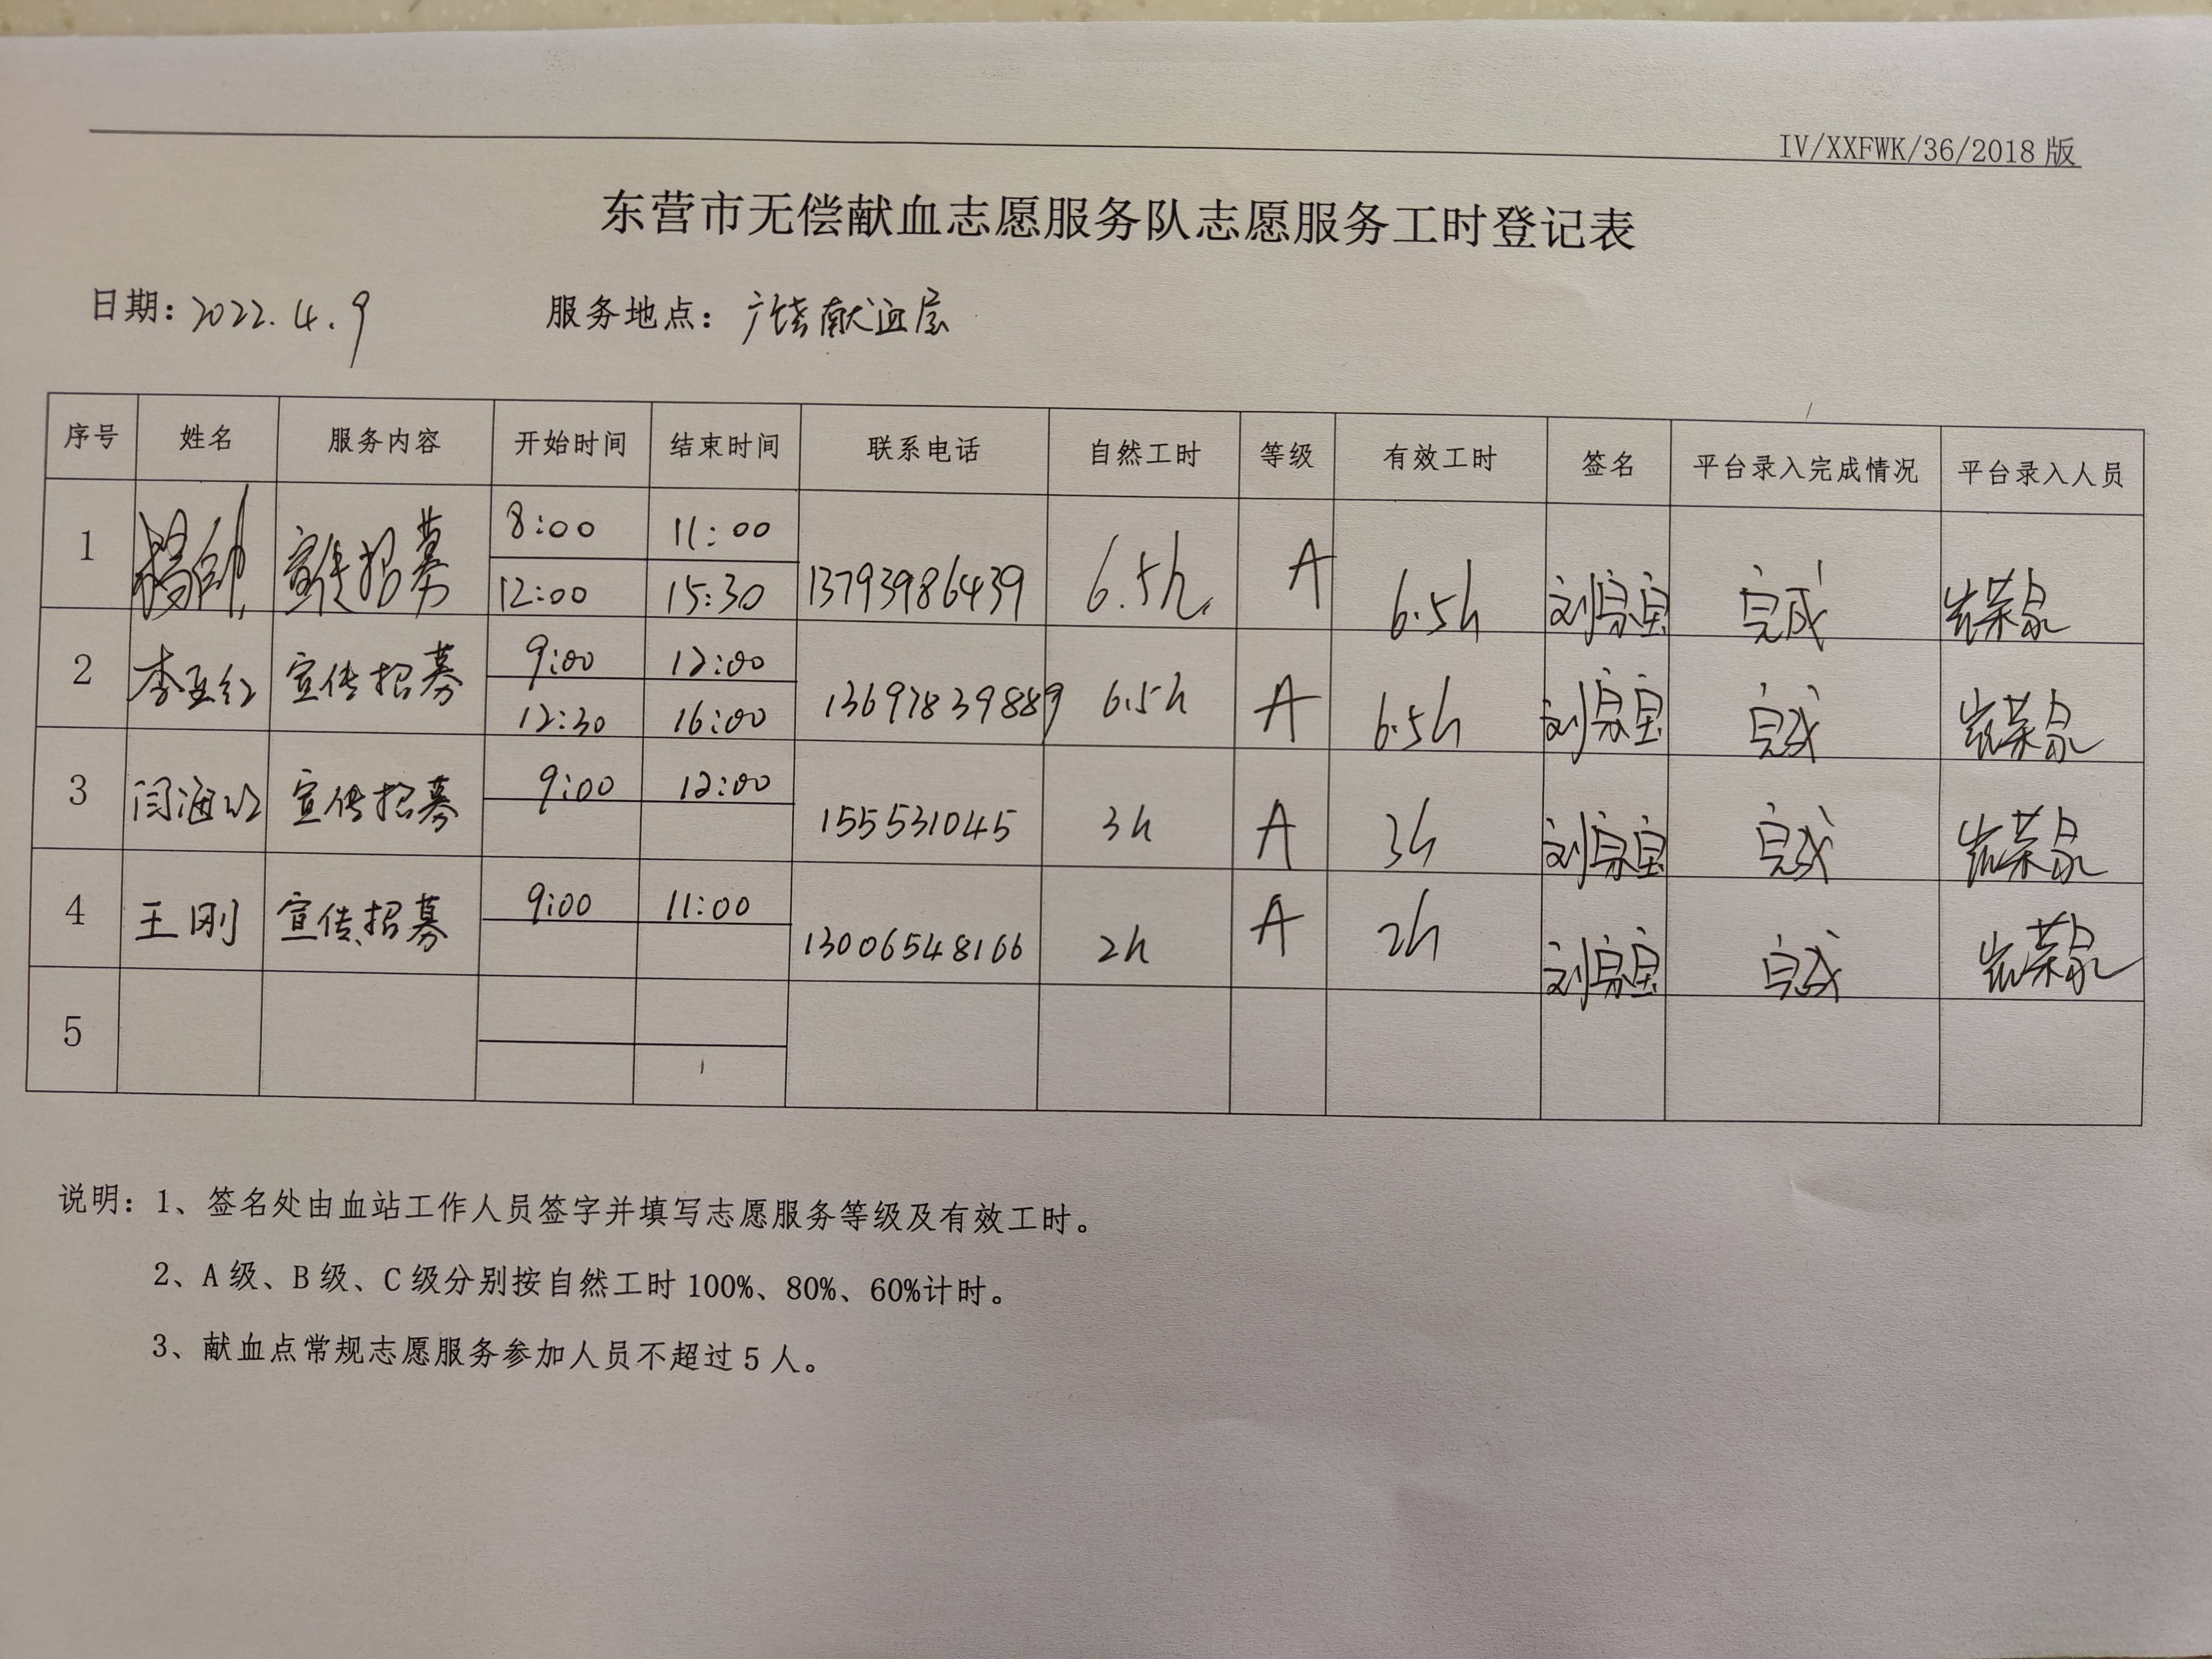 IV/XXFWK/36/2018 版
东营市无偿献血志愿服务队志愿服务工时登记表
日期：2022.4.9 服务地点：广饶献血屋
序号 姓名 服务内容 开始时间 结束时间 联系电话 自然工时 等级 有效工时 签名 平台录入完成情况 平台录入人员
1 杨帅 宣传招募 8:00 11:00 13793986439 6.5h A 6.5h 刘宗宝 完成 荣泉
12:00 15:30
2 李亚红 宣传招募 9:00 12:00 13697839889 6.5h A 6.5h 刘宗宝 完成 荣泉
12:30 16:00
3 闫海 宣传招募 9:00 12:00 155531045 3h A 3h 刘宗宝 完成 荣泉
4 王刚 宣传招募 9:00 11:00 13006548166 2h A 2h 刘宗宝 完成 荣泉
5
说明：1、签名处由血站工作人员签字并填写志愿服务等级及有效工时。
2、A 级、B 级、C 级分别按自然工时 100%、80%、60%计时。
3、献血点常规志愿服务参加人员不超过 5 人。